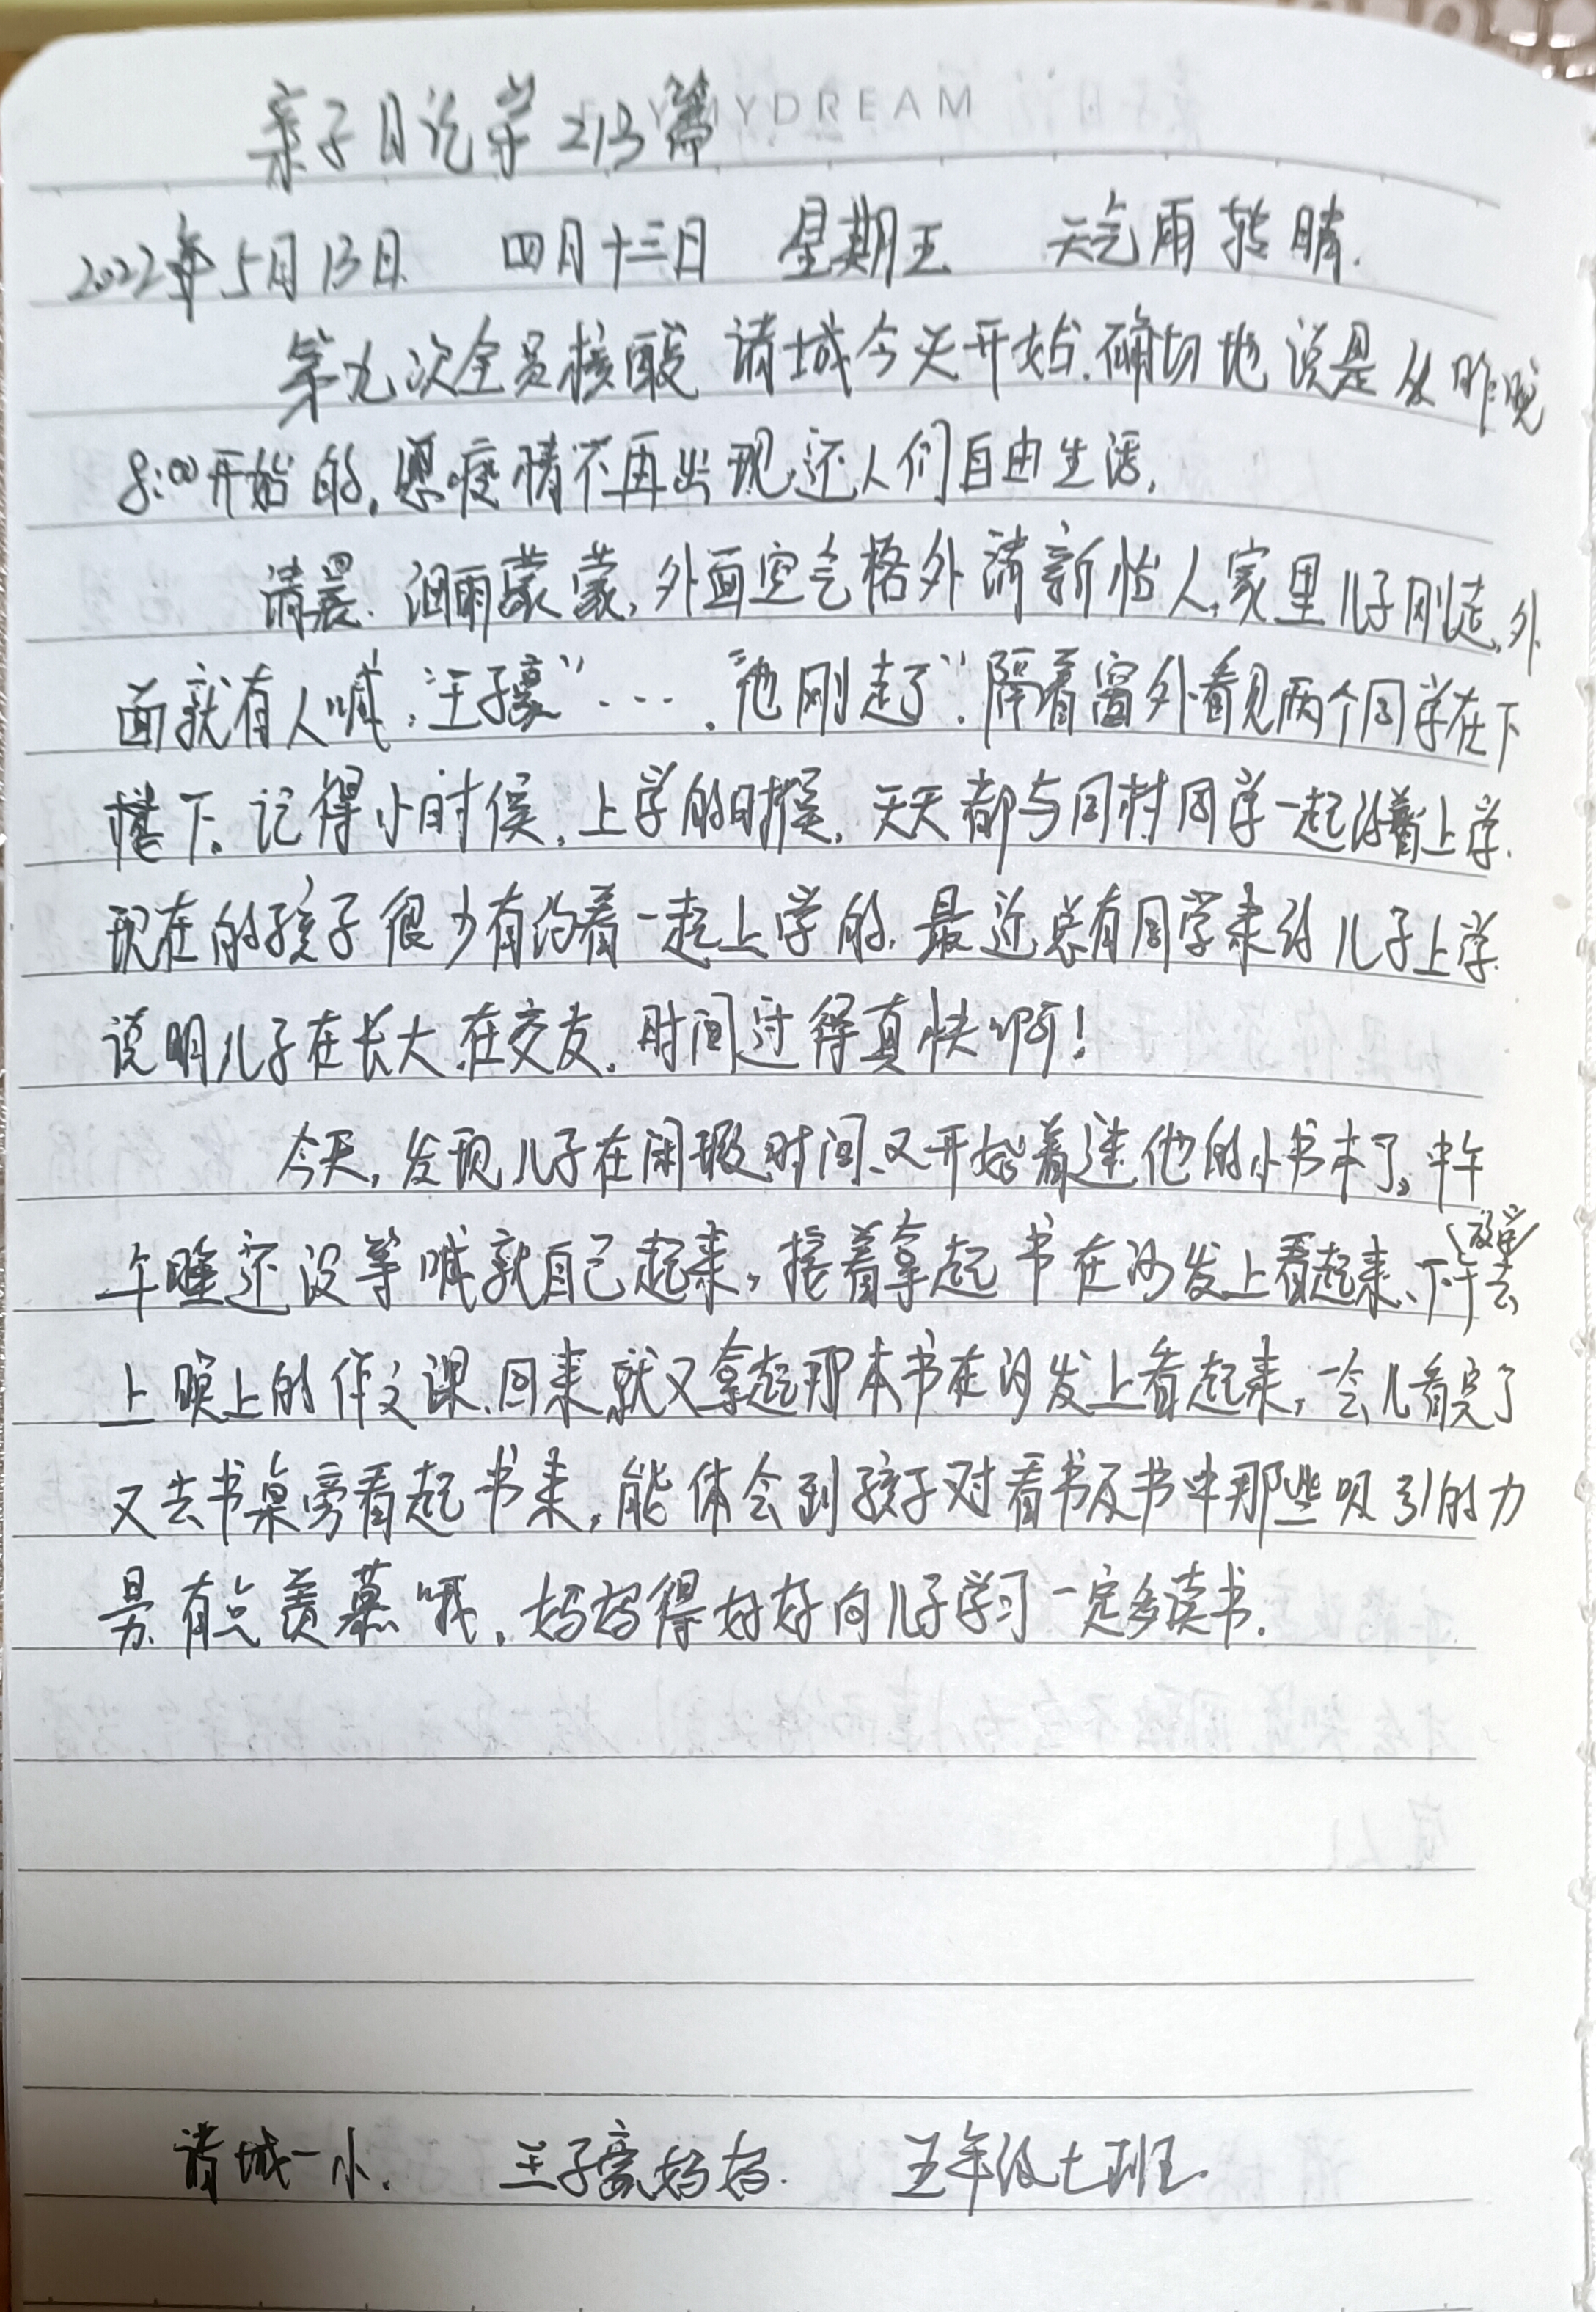 亲子日记第213篇
MYDREAM
2022年5月13日 四月十三日 星期五 天气雨转晴.
第九次全员核酸 诸城今天开始.确切地说是从昨晚
8:00开始的,愿疫情不再出现,还人们自由生活.
清晨.细雨蒙蒙,外面空气格外清新怡人,家里儿子刚走,外
面就有人喊:"王子豪"···."他刚走了".隔着窗外看见两个同学在下
楼下。记得小时侯,上学的时候,天天都与同村同学一起约着上学.
现在的孩子很少有约着一起上学的.最近总有同学来约儿子上学.
说明儿子在长大.在交友.时间过得真快啊!
今天,发现儿子在闲暇时间、又开始着迷他的小书本了,中午
午睡还没等喊就自己起来,接着拿起书在沙发上看起来、下午去
上晚上的作文课、回来就又拿起那本书在沙发上看起来,一会儿看完了
又去书桌旁看起书来,能体会到孩子对看书及书中那些吸引的力
量.有点羡慕哦.妈妈得好好向儿子学习一定多读书.
诸城一小. 王子豪妈妈. 五年级七班.